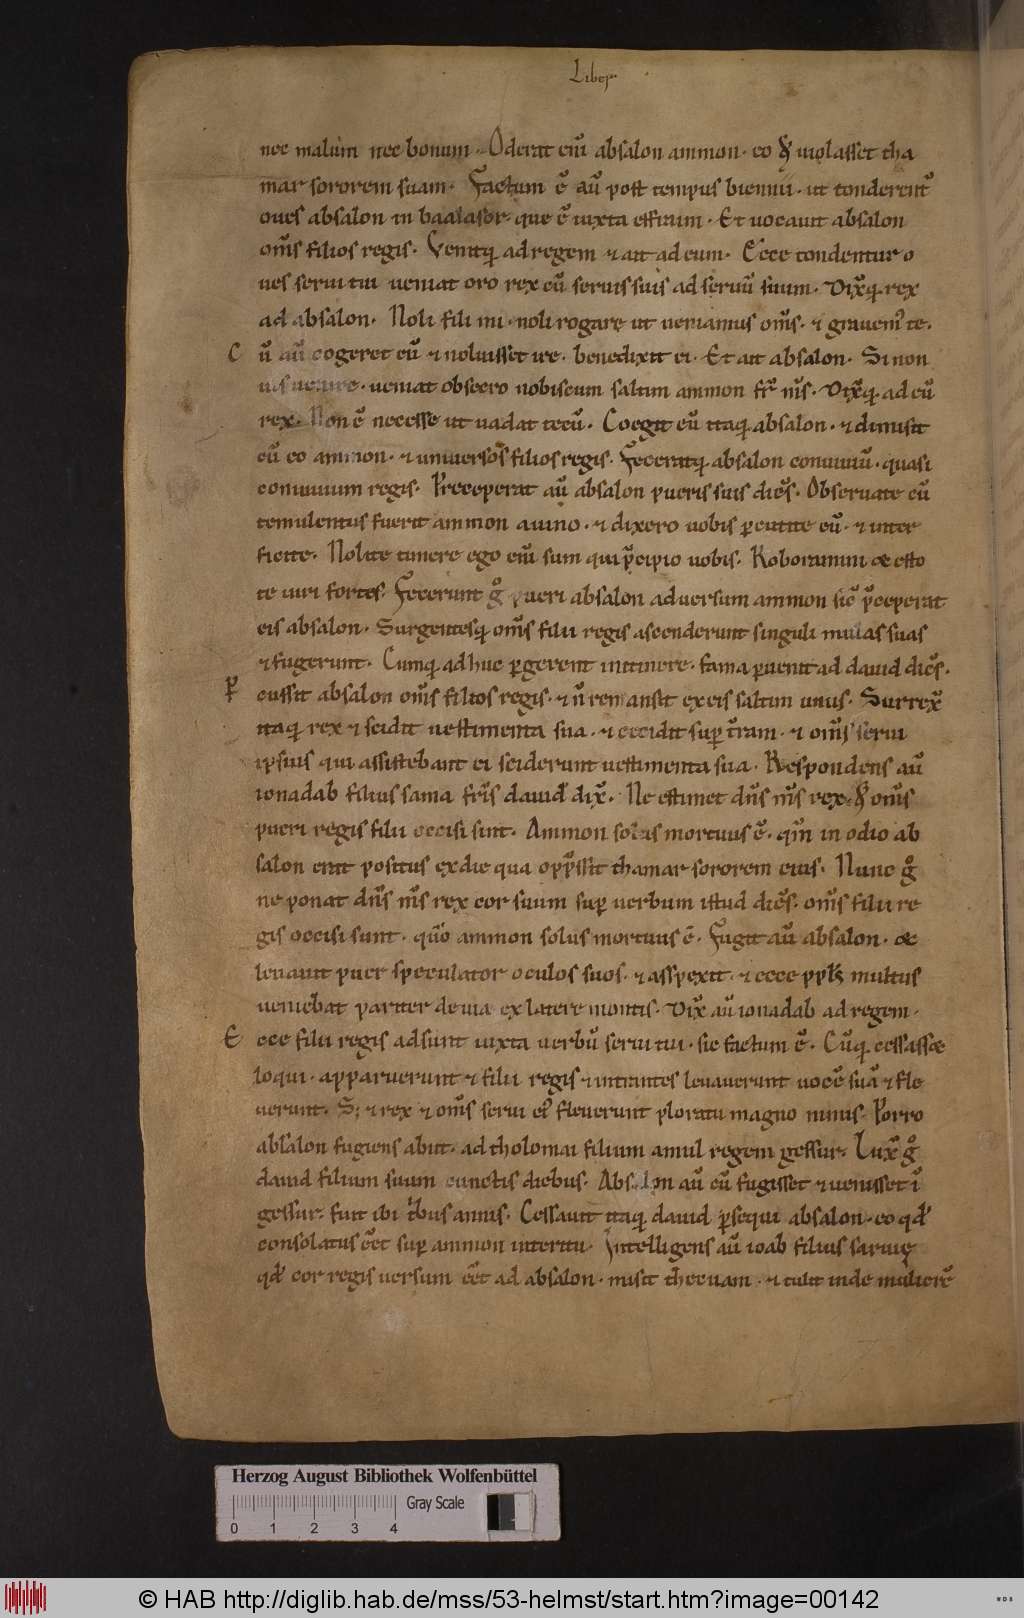 Liber
nec malum nec bonum. Oderat em̄ absalon ammon. eo qđ uiolasset tha
mar sororem suam. Factum ē aū post tempus biennii. ut tonderent᷑
oues absalon in baalasor. que ē iuxta effraim. Et uocauit absalon
om̄s filios regis. Venitq; ad regem & ait ad eum. Ecce tondentur o
ues serui tui ueniat oro rex cū seruis suis ad seruū suum. Dix̄q; rex
ad absalon. Noli fili mi. noli rogare ut ueniamus om̄s. & grauem᷒ te.
C ū aū cogeret eū & noluisset ire. benedixit ei. Et ait absalon. Si non
uis uenire. ueniat obsecro nobiscum saltim ammon fr̄ nr̄s. Dix̄q; ad eū
rex. Non ē necesse ut uadat tecū. Coegit eū itaq; absalon. & dimisit
cū eo ammon. & uniuersos filios regis. Feceratq; absalon conuiuiū. quasi
conuiuium regis. Preceperat aū absalon pueris suis dicēs. Obseruate cū
temulentus fuerit ammon auino. & dixero uobis ꝑcutite eū. & inter
ficite. Nolite timere ego em̄ sum qui p̄cipio uobis. Roboramini & esto
te uiri fortes. Fecerunt g° pueri absalon aduersum ammon sic̄ p̄ceperat
eis absalon. Surgentesq; om̄s filii regis ascenderunt singuli mulas suas
& fugerunt. Cumq; adhuc ꝑgerent initinere. fama ꝑuenit ad dauid dicēs.
P cussit absalon om̄s filios regis. & n̄ remansit exeis saltim unus. Surrex̄
itaq; rex & scidit uestimenta sua. & cecidit suꝑ t̄ram. & om̄s serui
ipsius qui assistebant ei sciderunt uestimenta sua. Respondens aū
ionadab filius sama fr̄is dauid dix̄. Ne estimet dn̄s m̄s rex. qđ om̄s
pueri regis filii occisi sint. Ammon solus mortuus ē. qm̄ in odio ab
salon erat positus exdie qua opp̄ssit thamar sororem eius. Nunc g°
ne ponat dn̄s m̄s rex cor suum suꝑ uerbum istud dicēs. om̄s filii re
gis occisi sunt. quō ammon solus mortuus ē. Fugit aū absalon. &
leuauit puer speculator oculos suos. & asspexit. & ecce ppłs multus
veniebat pariter deuia ex latere montis. Dix̄ aū ionadab ad regem.
E cce filii regis adsunt iuxta uerbū serui tui. sic factum ē. Cūq; cessass&
loqui. apparuerunt & filii regis & intrantes leuauerunt uocē suā & fle
uerunt. S; & rex & om̄s serui ei᷒ fleuerunt ploratu magno nimis. Porro
absalon fugiens abiit. ad tholomai filium amiul regem gessur. Lux̄ g°
dauid filium suum cunctis diebus. Absalon aū cū fugisset & uenisset ī
gessur. fuit ibi trib᷒ annis. Cessauit itaq; dauid ꝑsequi absalon. eo qđ
consolatus eēt suꝑ ammon interitu. Intelligens aū ioab filius saruię
qđ cor regis uersum eēt ad absalon. misit thecuam. & tulit inde mulierē
Herzog August Bibliothek Wolfenbüttel
Gray Scale
0 1 2 3 4
© HAB http://diglib.hab.de/mss/53-helmst/start.htm?image=00142